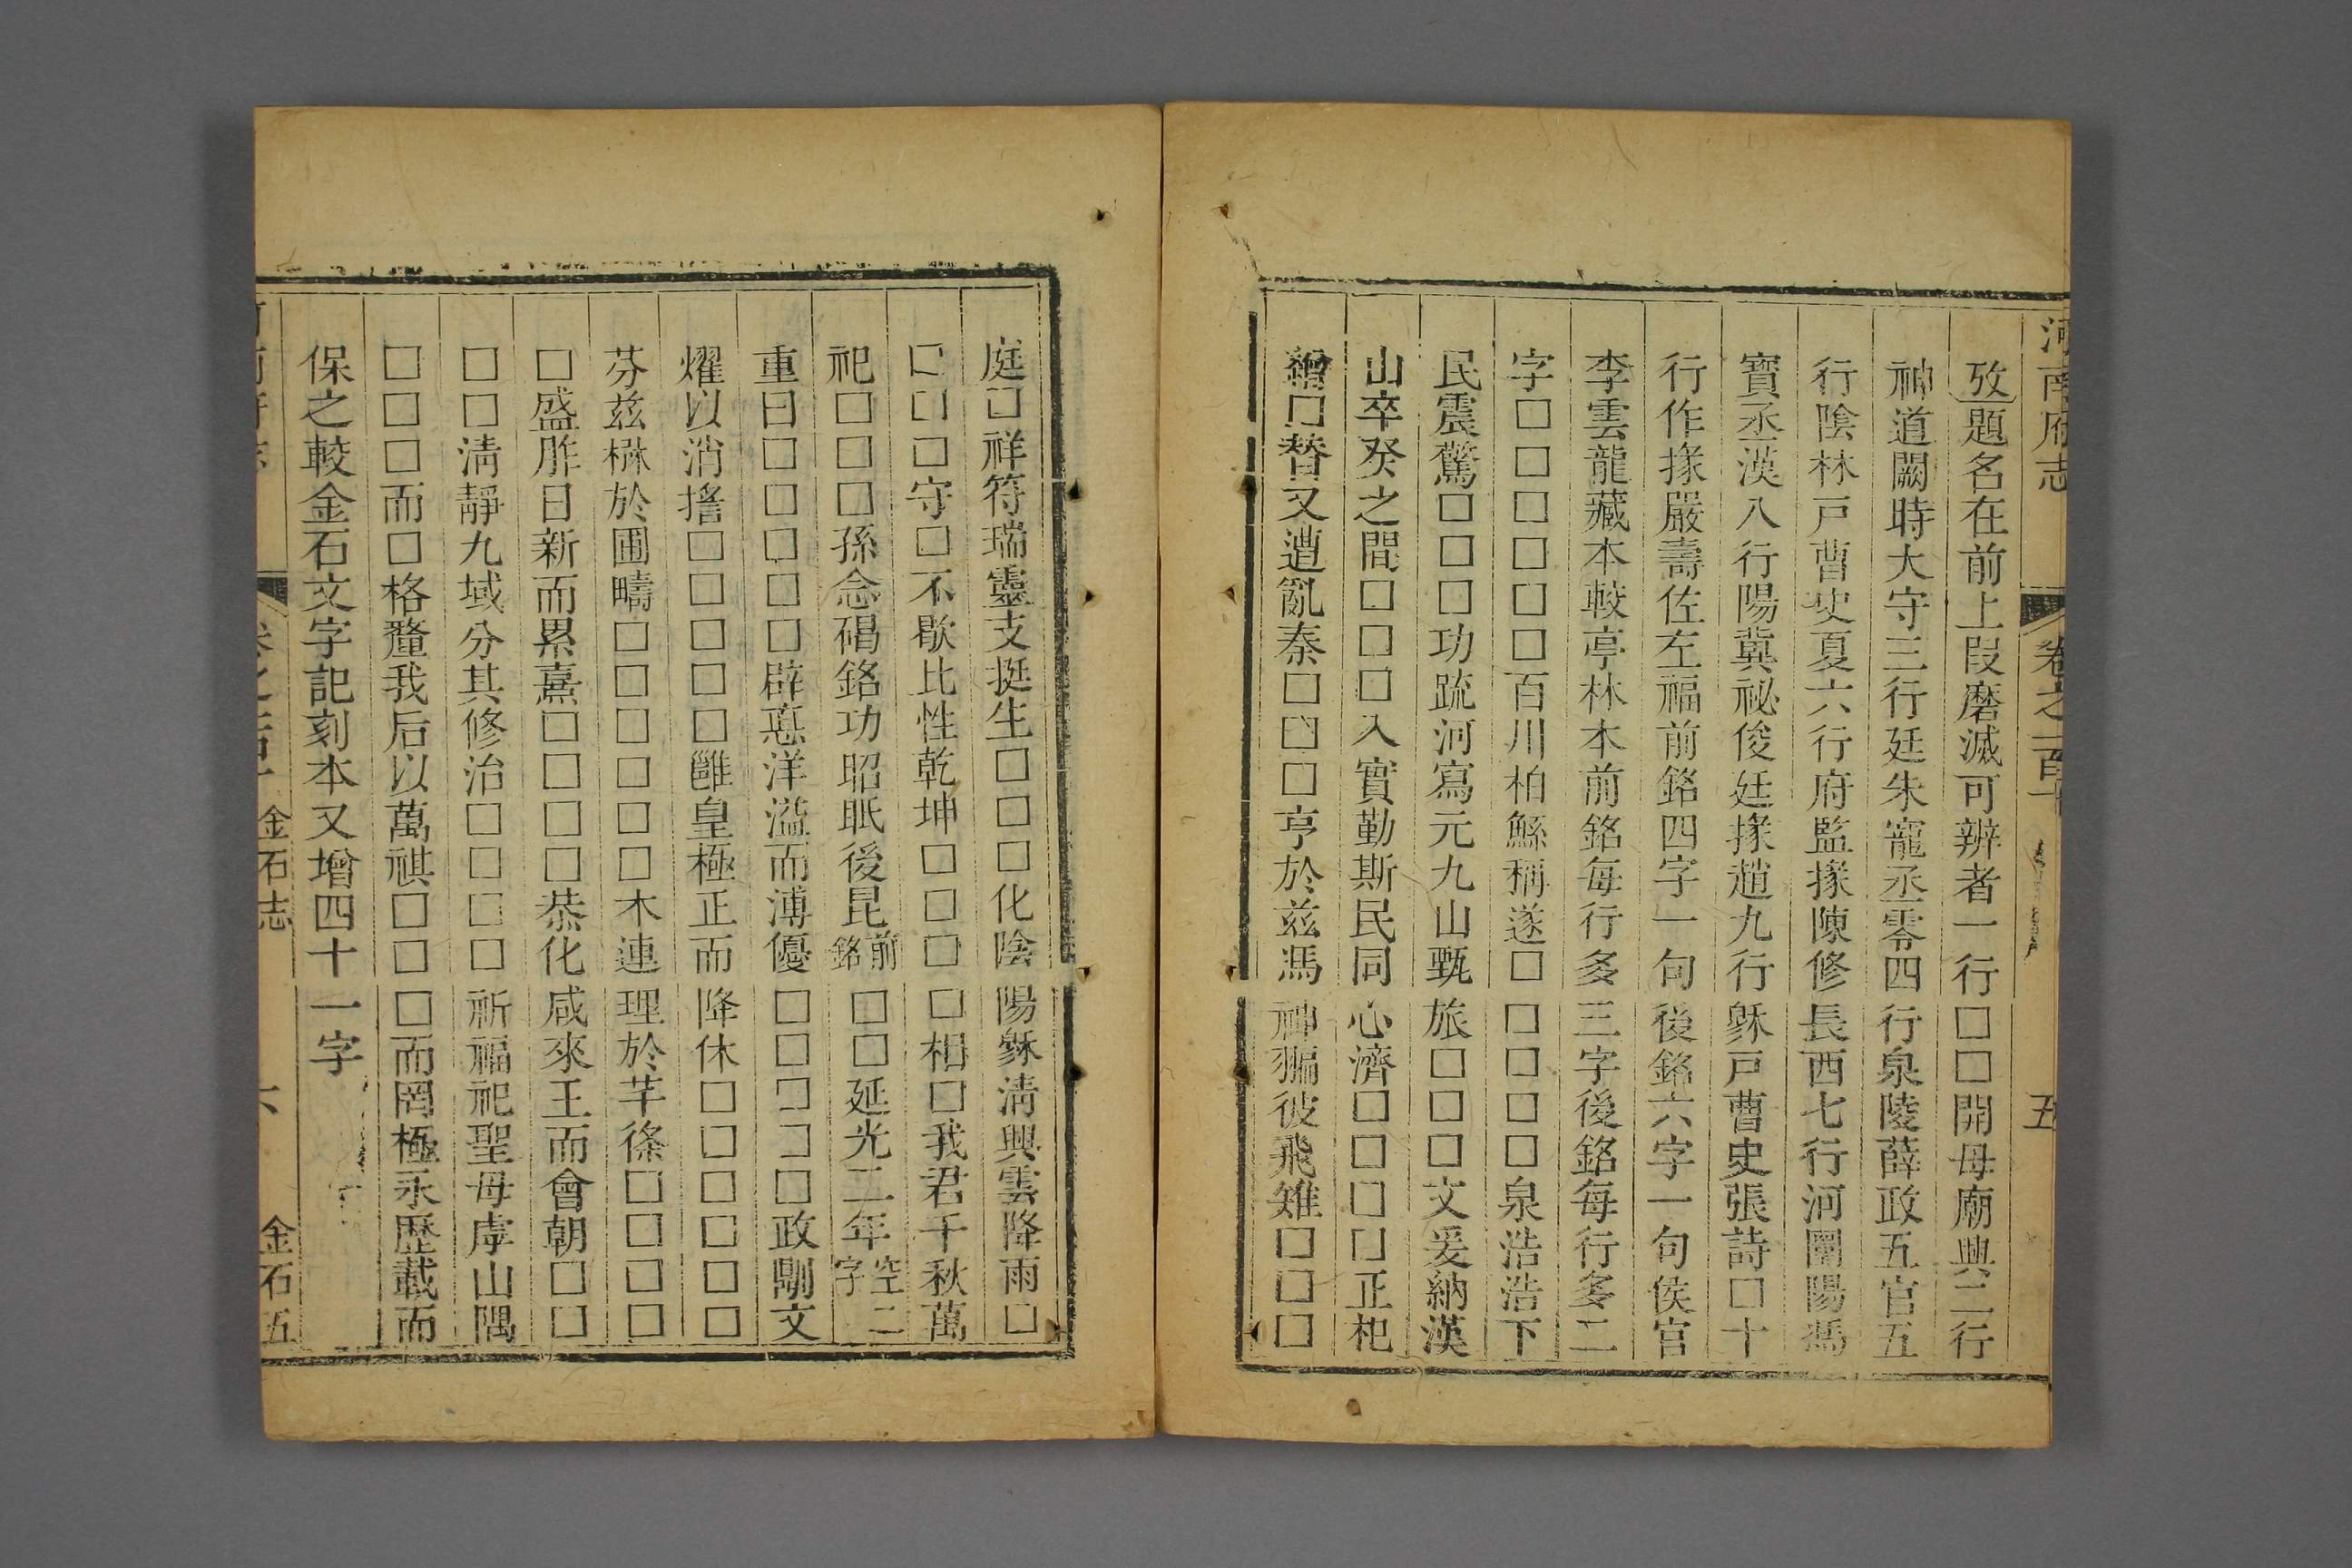 河南府志 卷之一百十 五
攷題名在前上段磨滅可辨者一行□□開母廟興二行
神道闕時大守三行廷朱寵丞零四行泉陵薛政五官五
行陰林戸曹史夏六行府監掾陳修長西七行河圜陽馮
寳丞漢八行陽冀祕俊廷掾趙九行穌戸曹史張詩□十
行作掾嚴壽佐左福前銘四字一句後銘六字一句侯官
李雲龍藏本較亭林本前銘每行多三字後銘每行多二
字□□□□□□百川柏鯀稱遂□□□□□泉浩浩下
民震驚□□□功䟽河寫元九山甄旅□□□文爰納漢
山卒癸之間□□□入實勤斯民同心濟□□□□正杞
繒□替又遭亂秦□□□亨於兹馮神翩彼飛雉□□□
庭□祥符瑞靈支挺生□□□化陰陽穌清興雲降雨□
□□□守□不歇比性乾坤□□□□相□我君千秋萬
祀□□□孫念碣銘功昭眡後昆前銘□□延光二年空二字
重曰□□□□□辟惪洋溢而溥優□□□□□政剬文
燿以消㨾□□□□□雝皇極正而降休□□□□□□
芬兹楙於圃疇□□□□□□木連理於芊條□□□□
□盛胙日新而累熹□□□□恭化咸來王而會朝□□
□□清靜九域分其修治□□□□祈福祀聖母虖山隅
□□□而□格釐我后以萬祺□□□而罔極永歷載而
保之較金石文字記刻本又增四十一字
金石志 六 金石五